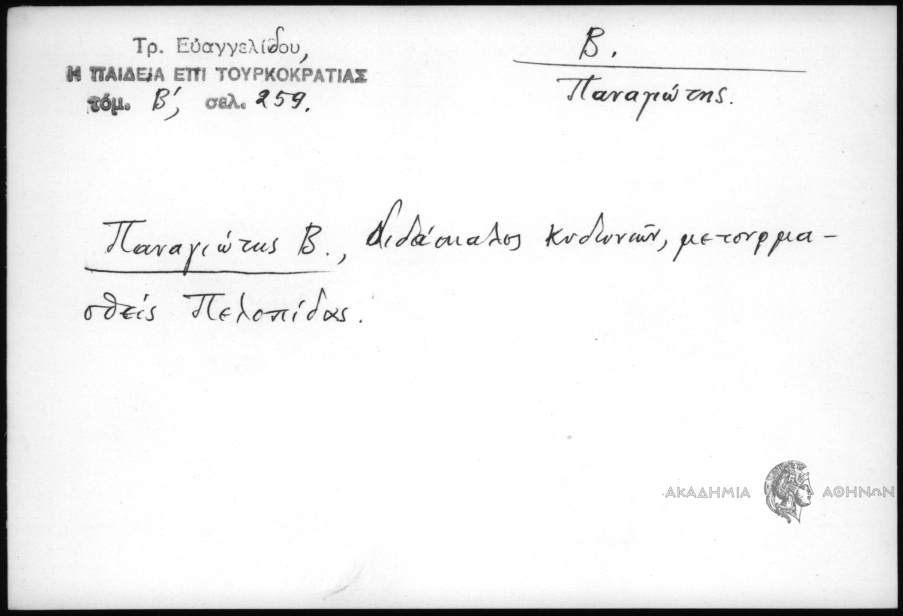 Τρ. Εὐαγγελίδου,
Η ΠΑΙΔΕΙΑ ΕΠΙ ΤΟΥΡΚΟΚΡΑΤΙΑΣ
τόμ. Β', σελ. 259.
Β.
Παναγιώτης.
Παναγιώτης Β., διδάσκαλος Κυδωνιῶν, μετονομα-
σθείς Πελοπίδας.
ΑΚΑΔΗΜΙΑ ΑΘΗΝΩΝ